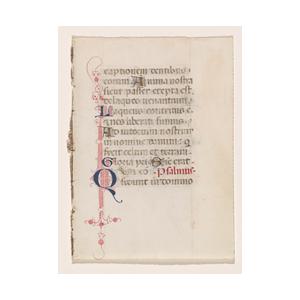 captionem dentibus
eorum Anima nostra
sicut passer erepta est
de laqueo venantium
Laqueus contritus est
et nos liberati sumus
Adiutorium nostrum
in nomine domini qui
fecit celum et terram
Gloria patri Sic erat
Psalmus
Qui confidunt in domino